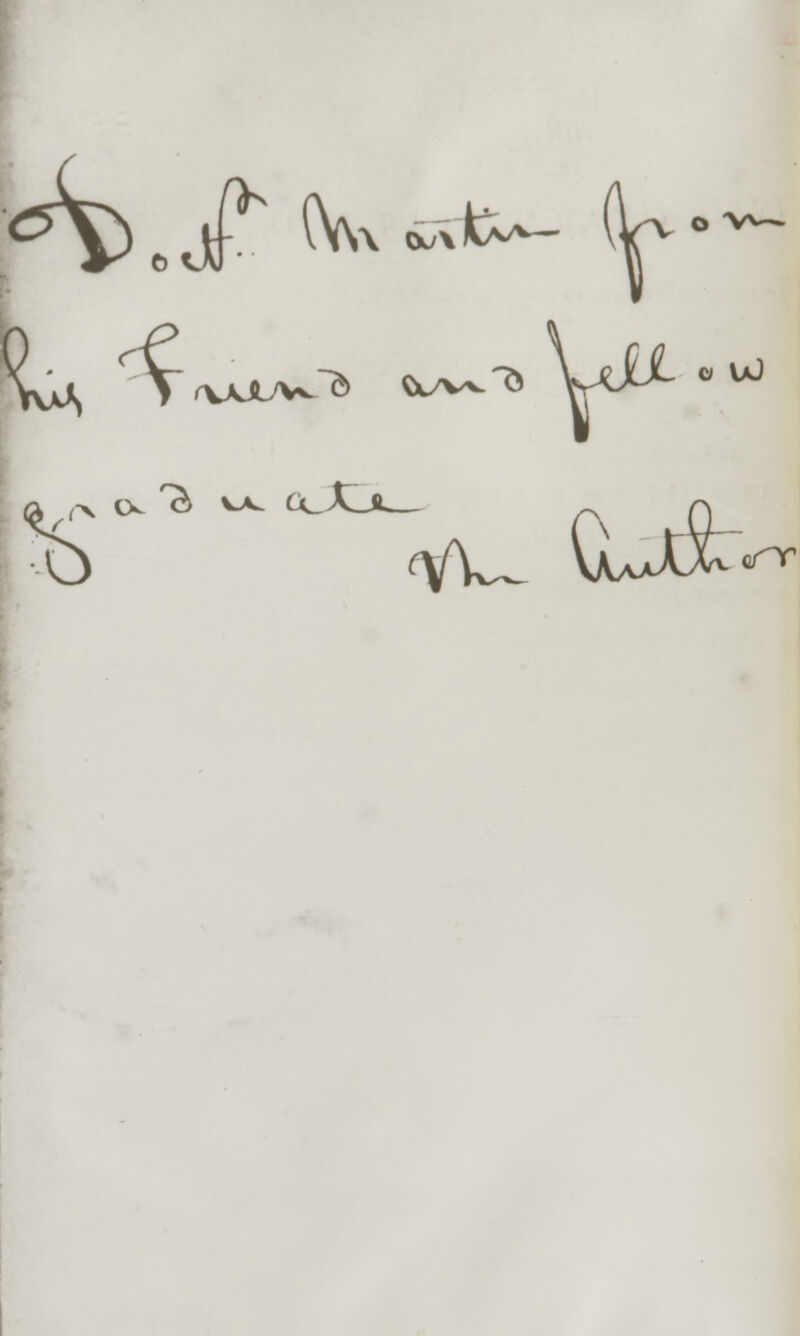 D. F. Martin from
his Friend and fellow
graduate
The Author